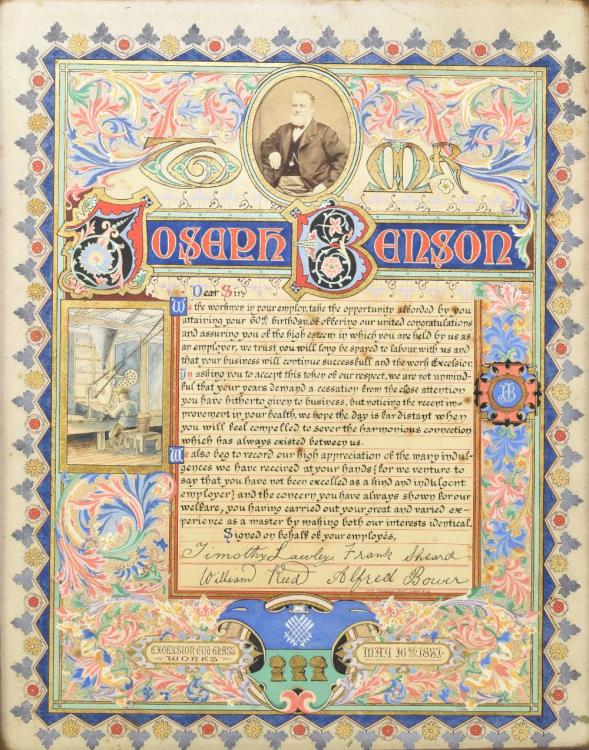 TO MR
JOSEPH BENSON
Dear Sir,
We the workmen in your employ, take the opportunity afforded by you
attaining your 60th birthday, of offering our united congratulations
and assuring you of the high esteem in which you are held by us as
an employer, we trust you will long be spared to labour with us and
that your business will continue successfull and the work Excelsior.
In asking you to accept this token of our respect, we are not unmind-
ful that your years demand a cessation from the close attention
you have hitherto given to business, but noticing the recent im-
provement in your health, we hope the day is far distant when
you will feel compelled to sever the harmonious connection
which has always existed between us.
We also beg to record our high appreciation of the many indul-
gences we have received at your hands (for we venture to
say that you have not been excelled as a kind and indulgent
employer) and the concern you have always shown for our
welfare, you having carried out your great and varied ex-
perience as a master by making both our interests identical.
Signed on behalf of your employés,
Timothy Lawley Frank Sheard
William Reed Alfred Bower
EXCELSIOR CUT GLASS
WORKS
MAY 16th 1881.
JB